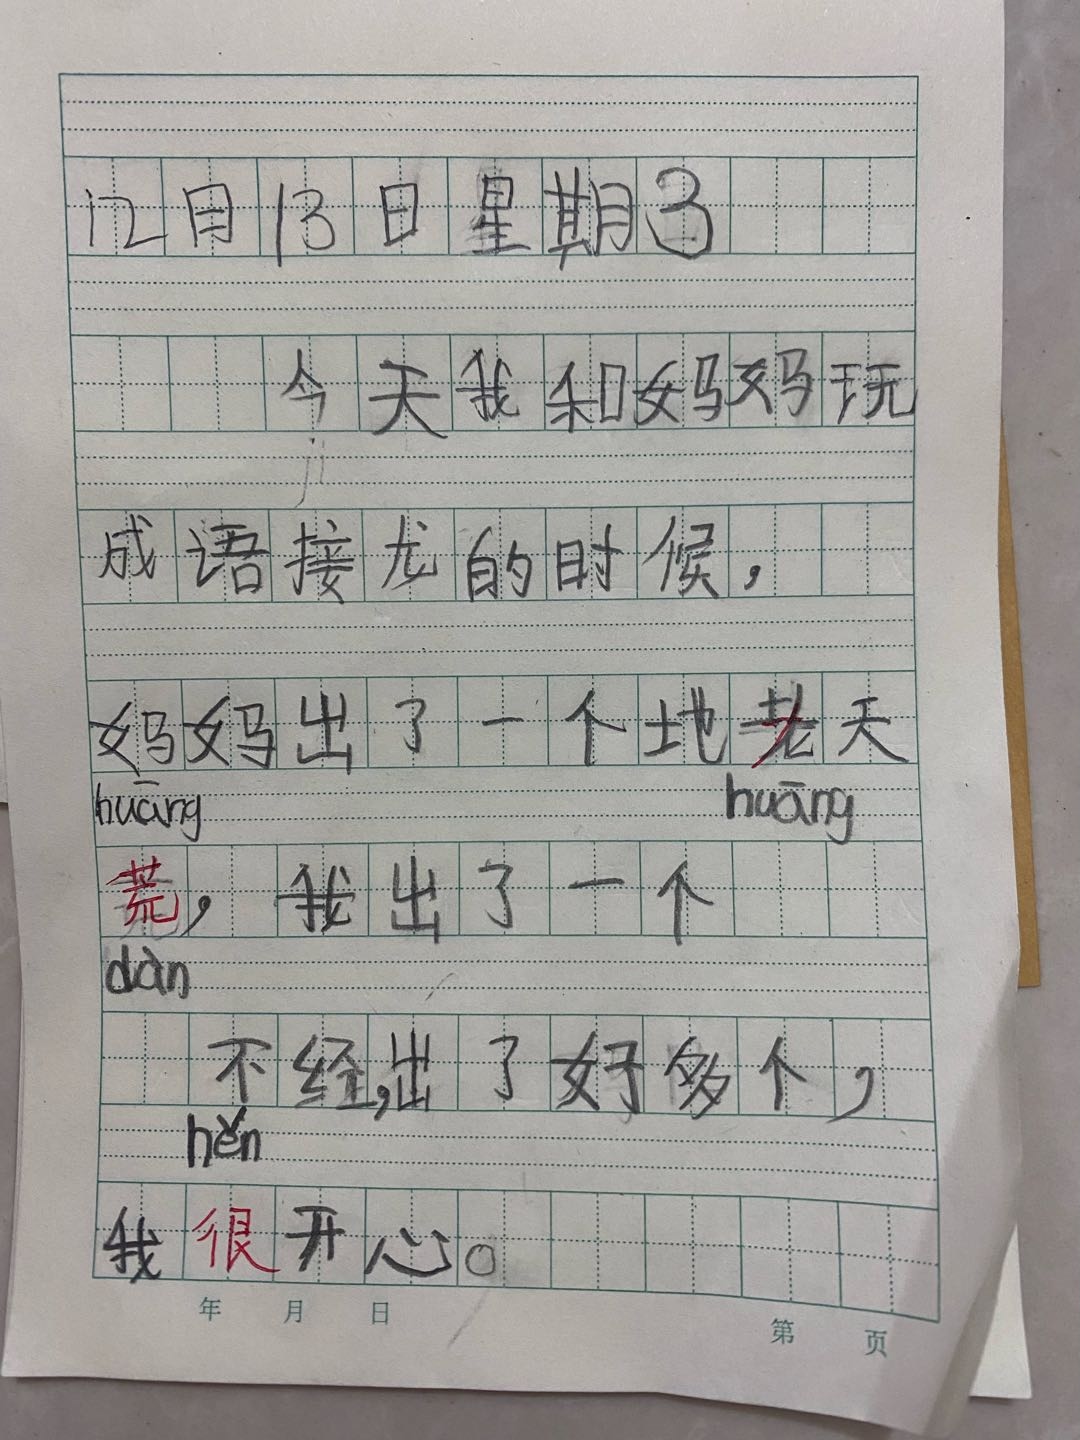 12月13日星期3
今天我和妈妈玩
成语接龙的时候，
妈妈出了一个地老天
huāng huāng
荒，我出了一个
dàn
不经，出了好多个，
hěn
我很开心。
年 月 日 第 页